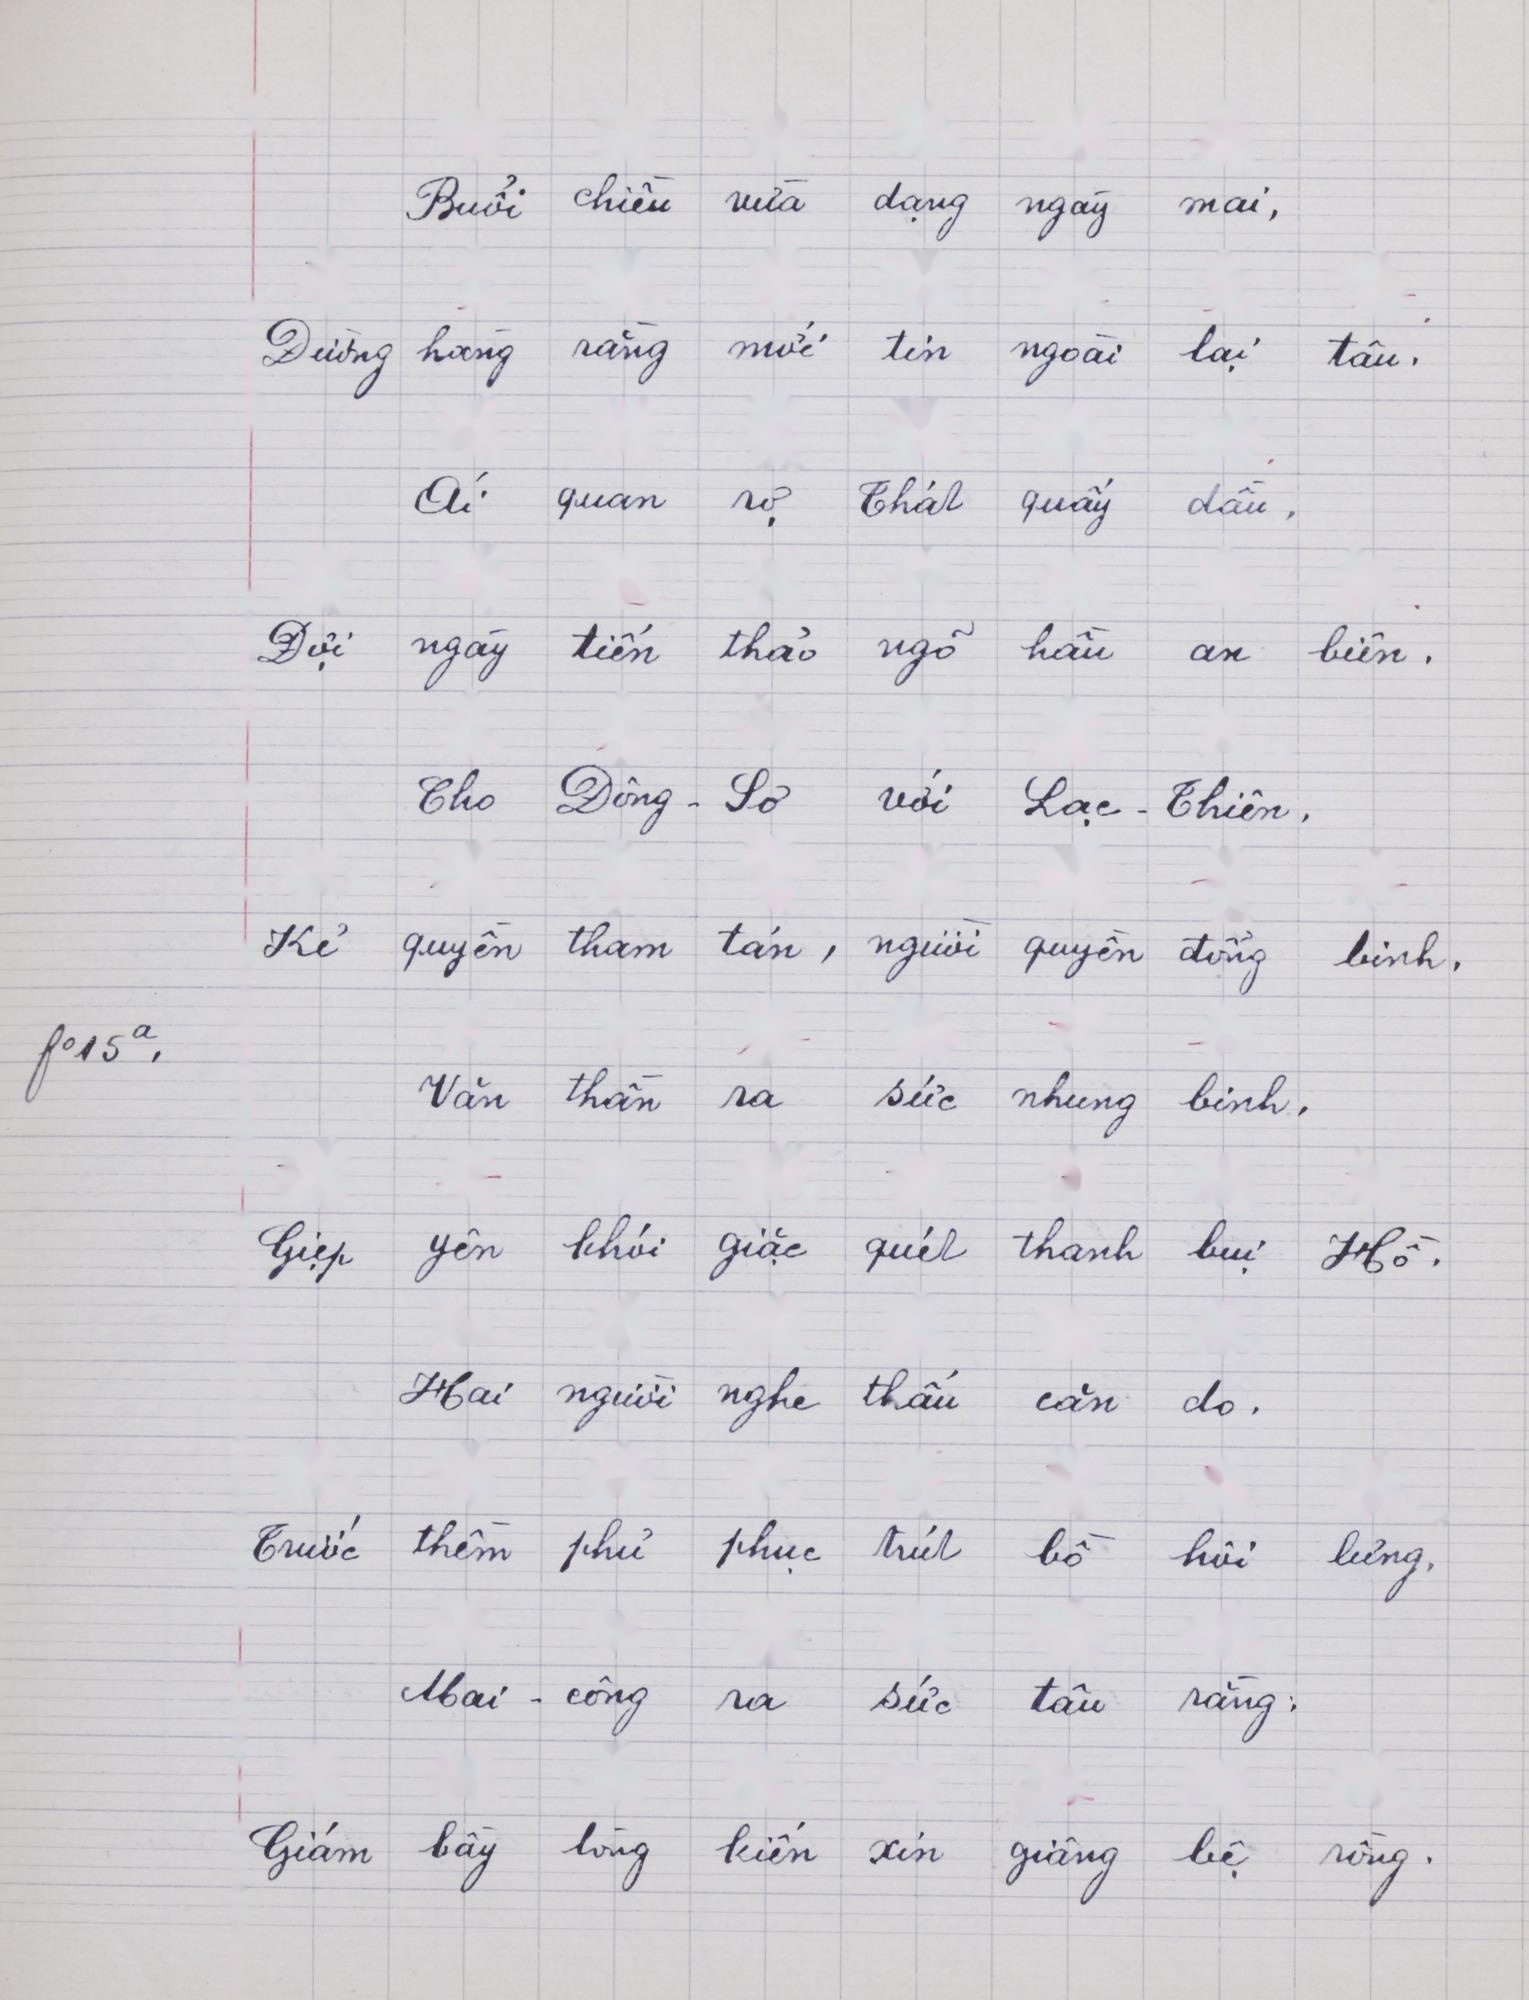 Buổi chiều vừa dạng ngày mai,
Dường hoàng rằng mới tin ngoài lại tâu.
Ai quan rợ Thát quấy dầu,
Đợi ngày tiến thảo ngõ hầu an biên.
Cho Đông-Sơ với Lạc-Thiên,
Kẻ quyền tham tán, người quyền đổng binh.
fº15ª.
Văn thần ra sức nhung binh,
Giẹp yên khói giặc quét thanh bụi Hồ.
Hai người nghe thấu căn do.
Trước thềm phủ phục trút bồ hôi lưng.
Mai-công ra sức tâu rằng:
Giám bầy lòng kiến xin giâng bệ rồng.